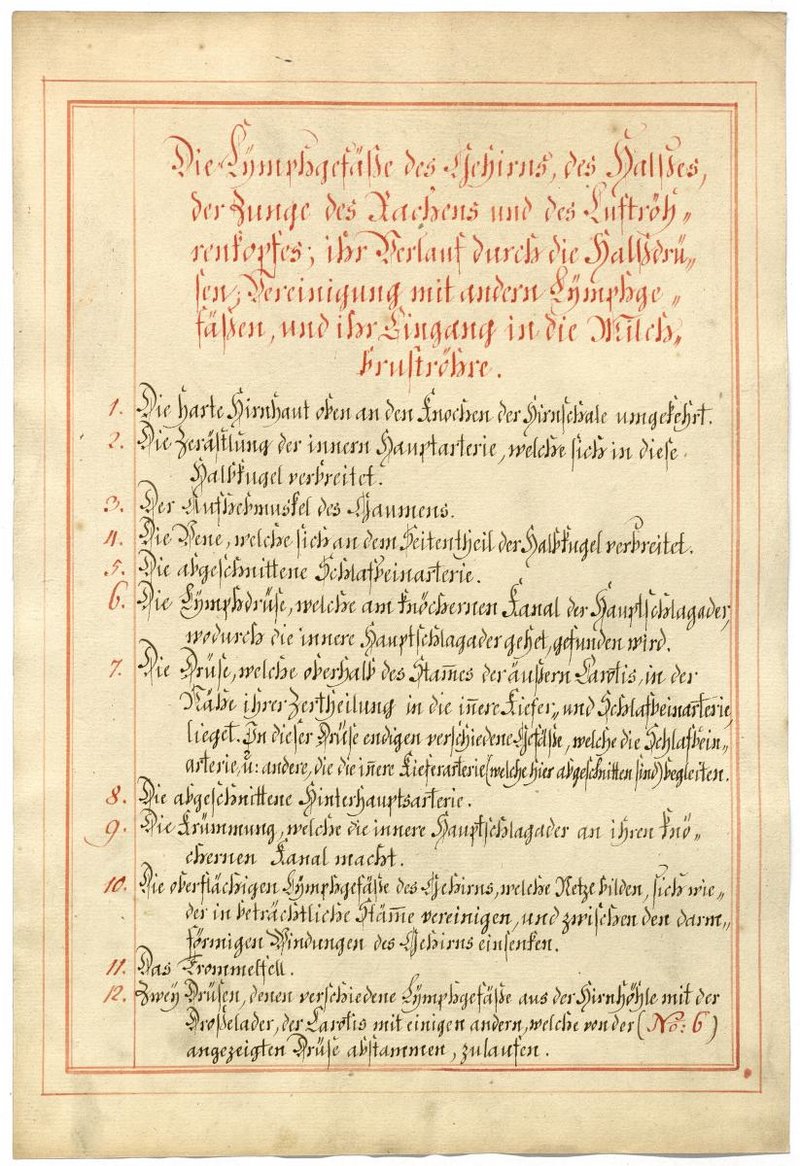 Die Lÿmphgefäße des Gehirns, des Halßes,
der Zunge des Rachens und des Luftröh„
renkopfes; ihr Verlauf durch die Halßdrü„
sen; Vereinigung mit andern Lÿmphge„
fäßen, und ihr Eingang in die Milch„
bruströhre.
1. Die harte Hirnhaut oben an den Knochen der Hirnschale umgekehrt.
2. Die Zerästlung der innern Hauptarterie, welche sich in diese
Halbkugel verbreitet.
3. Der Aufhebmuskel des Gaumens.
4. Die Vene, welche sich an dem Seitentheil der Halbkugel verbreitet.
5. Die abgeschnittene Schlafbeinarterie.
6. Die Lÿmphdrüse, welche am knöchernen Kanal der Hauptschlagader,
wodurch die innere Hauptschlagader gehet, gefunden wird.
7. Die Drüse, welche oberhalb des Stam̅es der äußern Carotis, in der
Nähe ihrer Zertheilung in die in̅ere Kiefer„ und Schlafbeinarterie,
lieget. In dieser Drüse endigen verschiedene Gefäße, welche die Schlafbein„
arterie, u: andere, die die in̅ere Kieferarterie (welche hier abgeschnitten sind) begleiten.
8. Die abgeschnittene Hinterhauptsarterie.
9. Die Krümmung, welche die innere Hauptschlagader an ihren knö„
chernen Kanal macht.
10. Die oberflächigen Lÿmphgefäße des Gehirns, welche Netze bilden, sich wie„
der in beträchtliche Stäm̅e vereinigen, und zwischen den darm„
förmigen Windungen des Gehirns einsenken.
11. Das Trommelfell.
12. Zweÿ Drüsen, denen verschiedene Lÿmphgefäße aus der Hirnhöhle mit der
Droßelader, der Carotis mit einigen andern, welche von der (No: 6)
angezeigten Drüse abstammen, zulaufen.